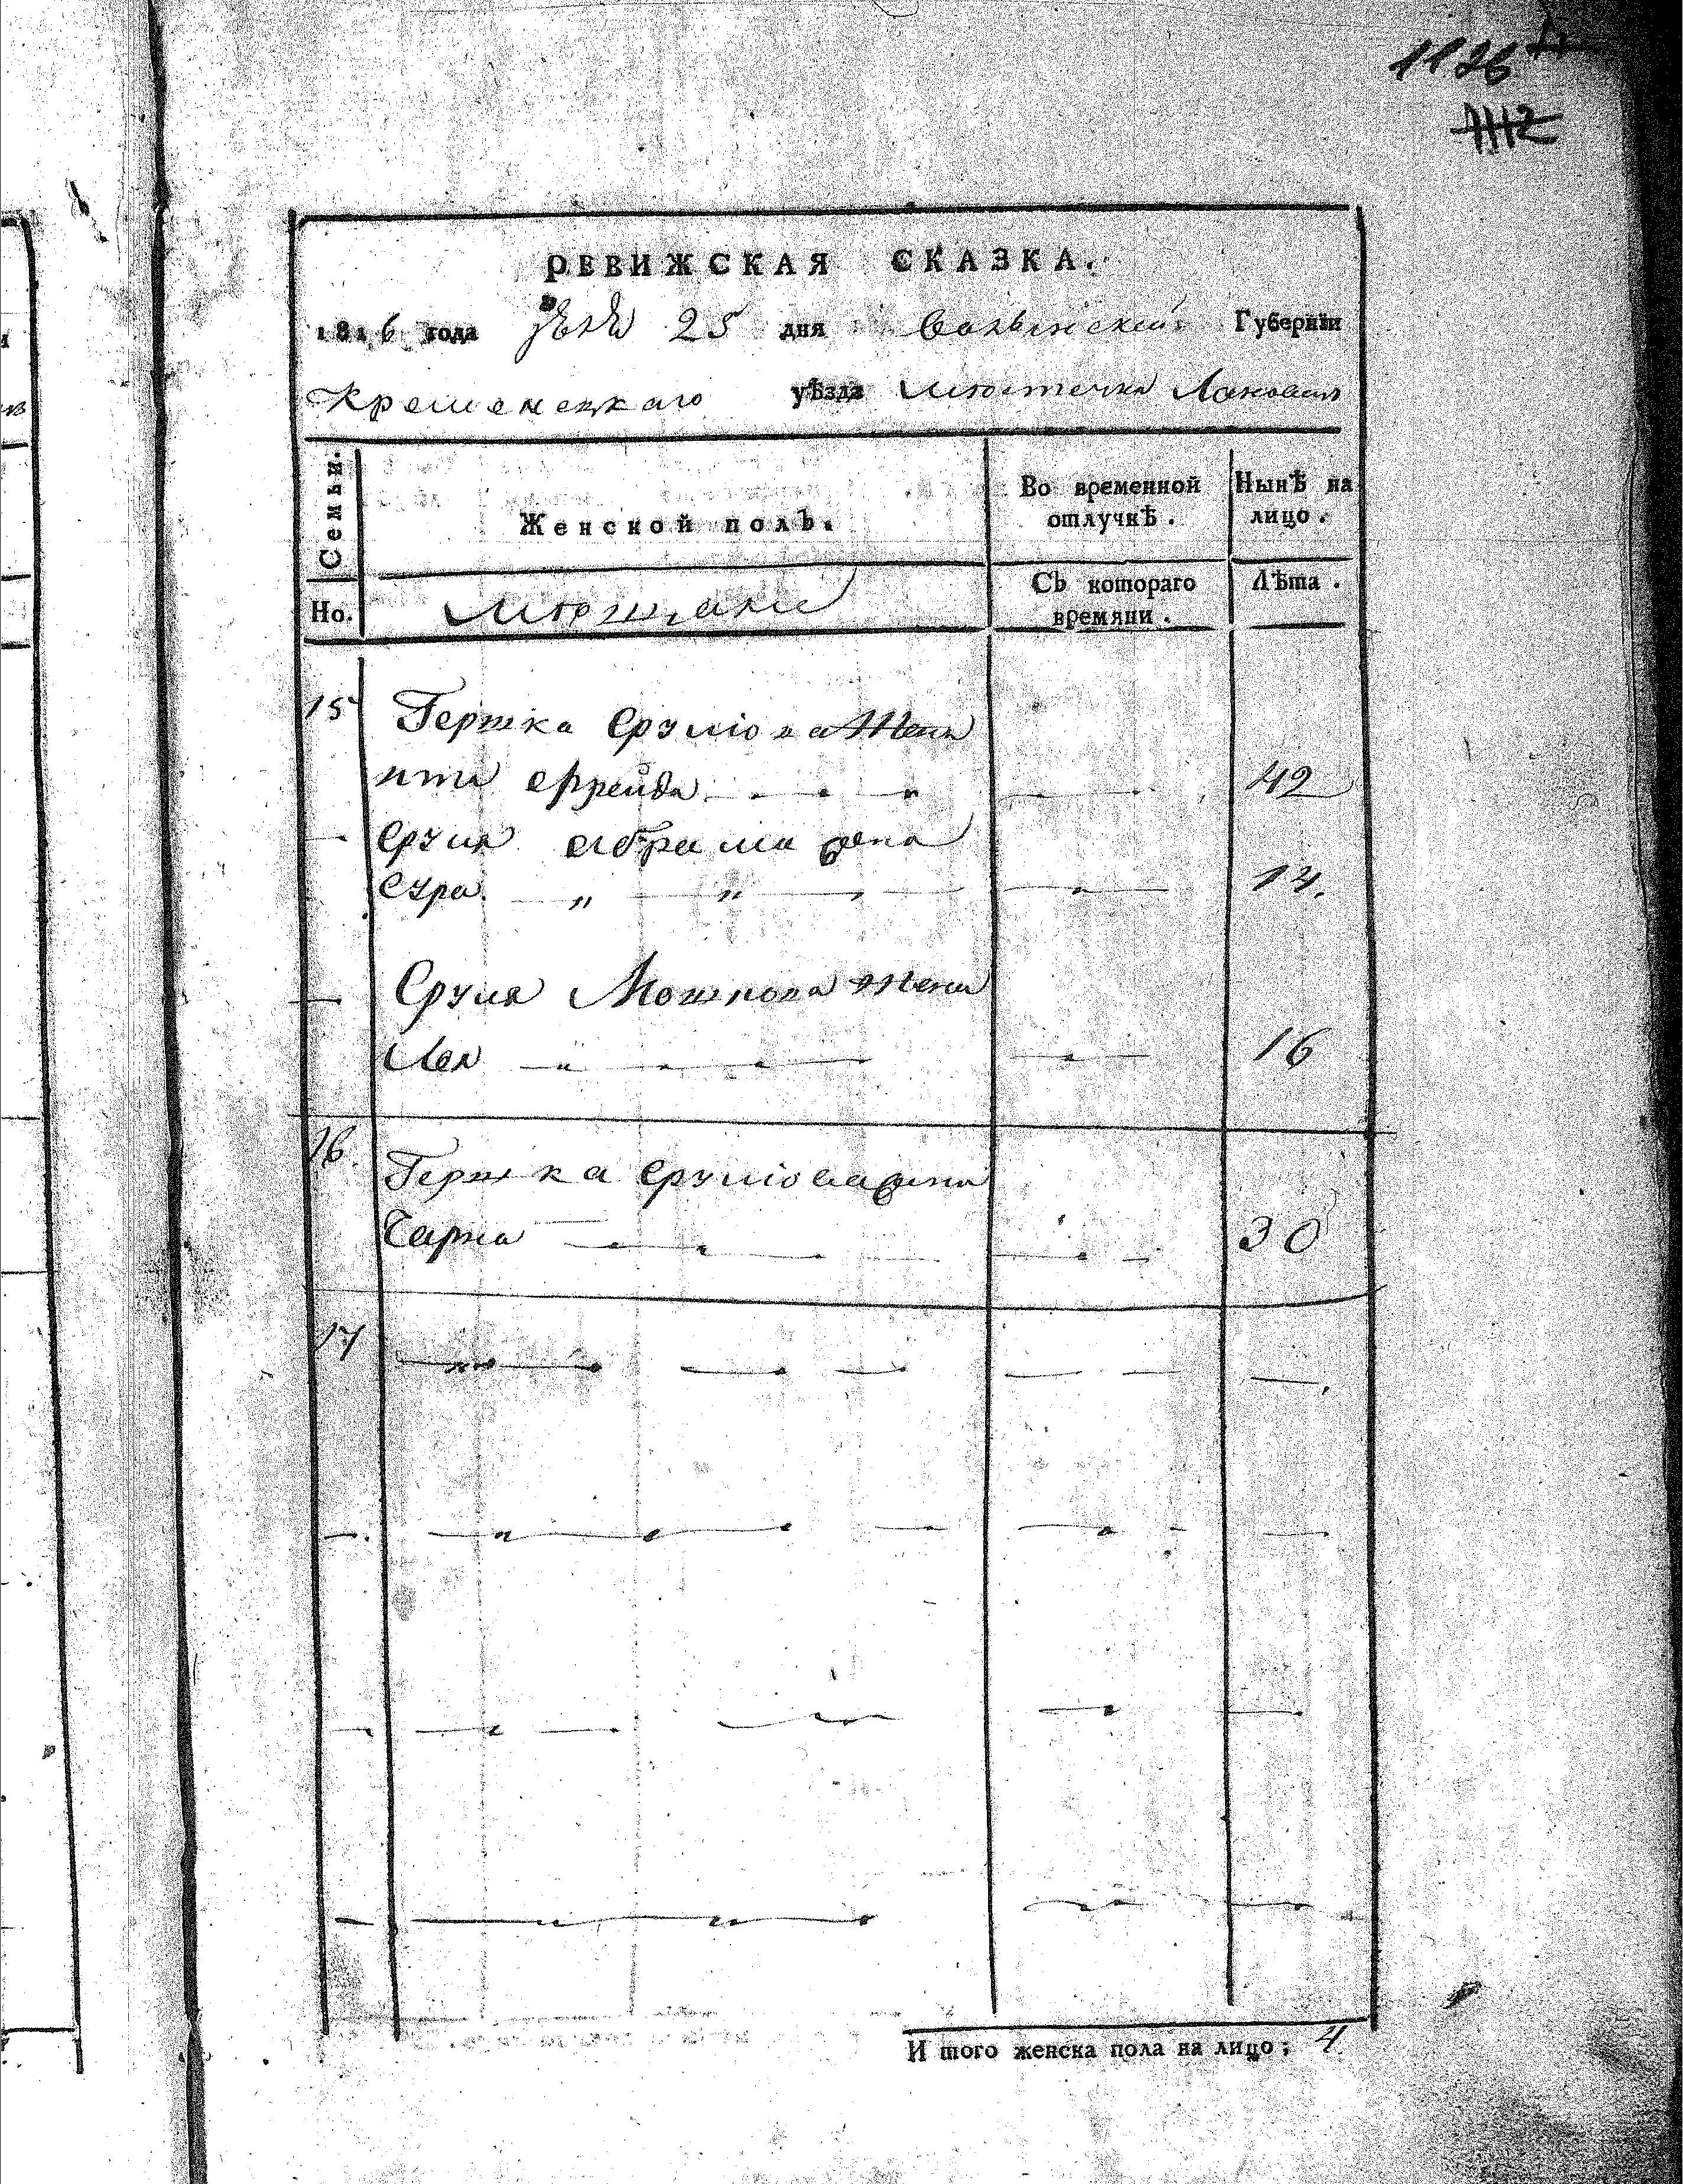 1126
1112
РЕВИЖСКАЯ СКАЗКА.
1816 года 25 дня Волынской Губернїи
Кременецкаго уѣзда местечка Лановецъ
Семьи.
Женской полъ.
Во временной отлучкѣ.
Нынѣ на лицо.
Но.
Съ котораго времяни.
Лѣта.
15 Гершка Срулiова Жена
Фрейда 42
Сруля Абрама жена
Сура 14.
Сруля Мошкова жена
Лея 16
16. Гершка Срулiова жена
Чарна 30
17
И того женска пола на лицо; 4